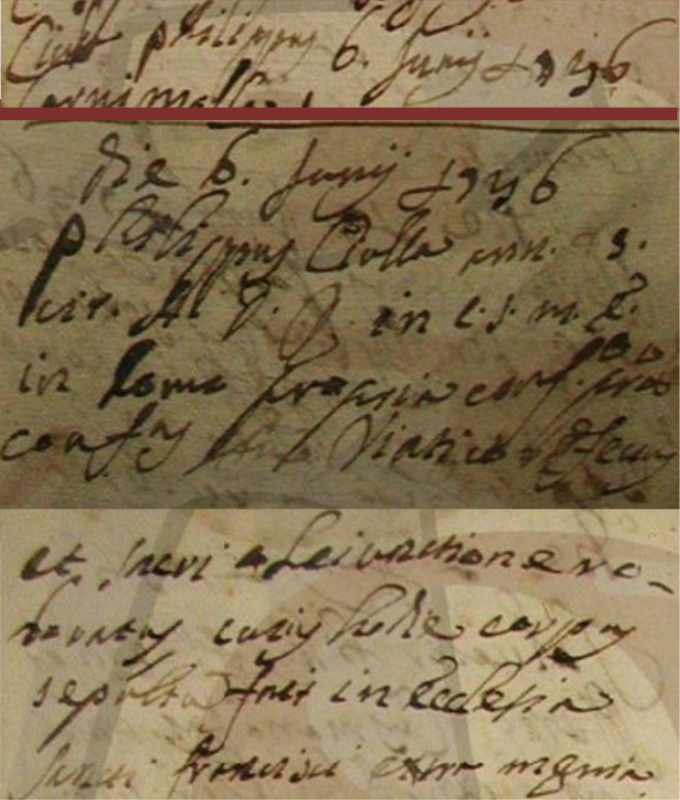 Ciull philippus 6. Junij 1736
die 6. Junij 1736
philippus Ciulla ann.
cir. A. J. in c. s. m. E.
in domo propria conf. pbro
confess Viatico refectus
et sacri olei unctione ro-
boratus cuius hodie corpus
sepultu fuit in Ecclesia
sancti francisci extra menia